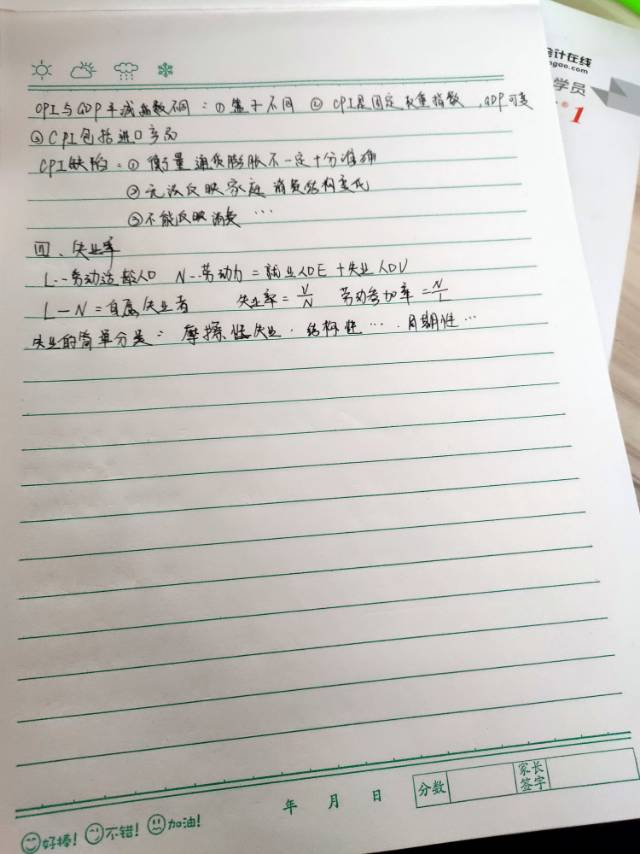 CPI与GDP平减指数不同：①篮子不同 ②CPI是固定权重指数，GDP可变
③CPI包括进口产品
CPI缺陷：①衡量通货膨胀不一定十分准确
②无法反映家庭消费结构变化
③不能反映消费…
四、失业率
L--劳动适龄人口 N--劳动力=就业人口E+失业人口U
L-N=自愿失业者 失业率=U/N 劳动参加率=N/L
失业的简单分类：摩擦性失业.结构性….周期性…
年 月 日
分数
家长签字
好棒! 不错! 加油!
会计在线
学员
1